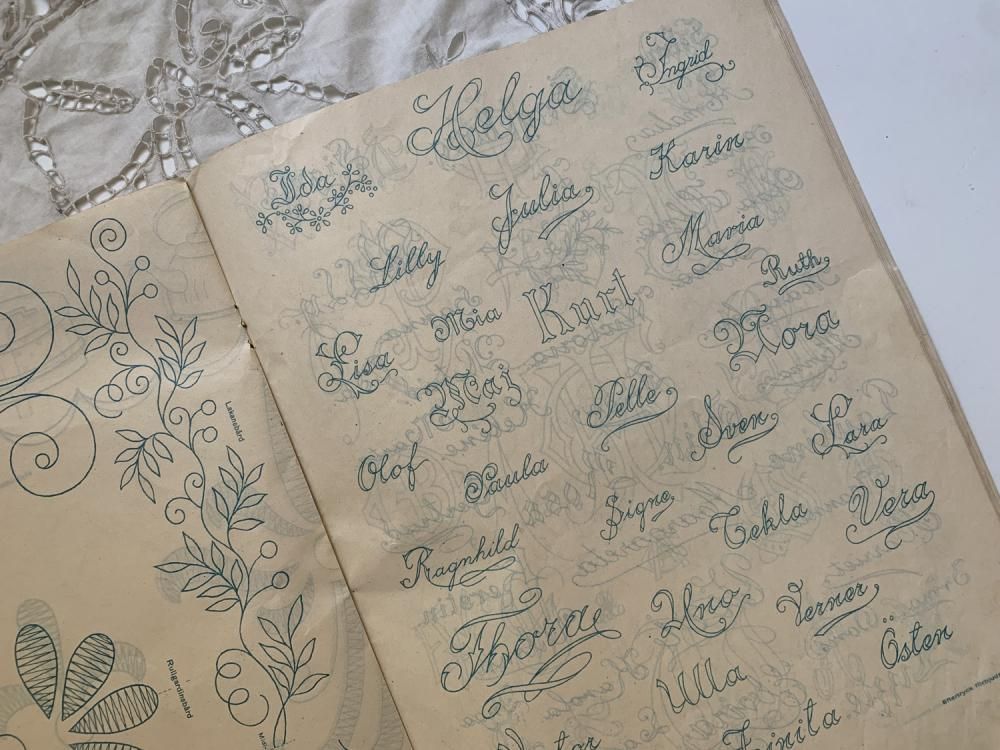 Helga
Ingrid
Ida
Julia
Karin
Lilly
Maria
Lisa
Mia
Kurt
Ruth
Maj
Nora
Pelle
Sven
Lara
Olof
Paula
Signe
Tekla
Vera
Ragnhild
Thora
Uno
Verner
Ulla
Östen
Lakansbård
Rullgardinsbård